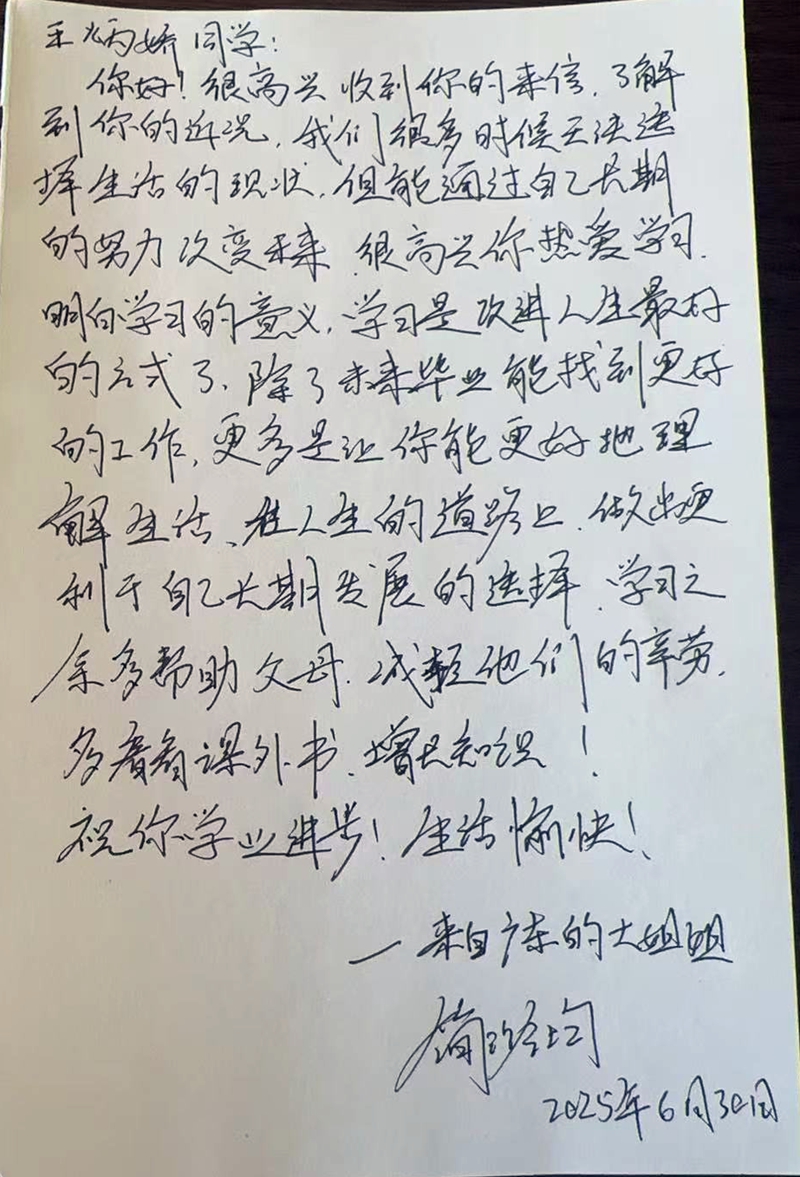 王炳娇同学：
你好！很高兴收到你的来信，了解
到你的近况，我们很多时候无法选
择生活的现状，但能通过自己长期
的努力改变未来，很高兴你热爱学习，
明白学习的意义，学习是改进人生最好
的方式了，除了未来毕业能找到更好
的工作，更多是让你能更好地理
解生活、在人生的道路上，做出更
利于自己长期发展的选择，学习之
余多帮助父母，减轻他们的辛劳，
多看看课外书，增长知识！
祝你学业进步！生活愉快！
—来自广东的大姐姐
2025年6月30日